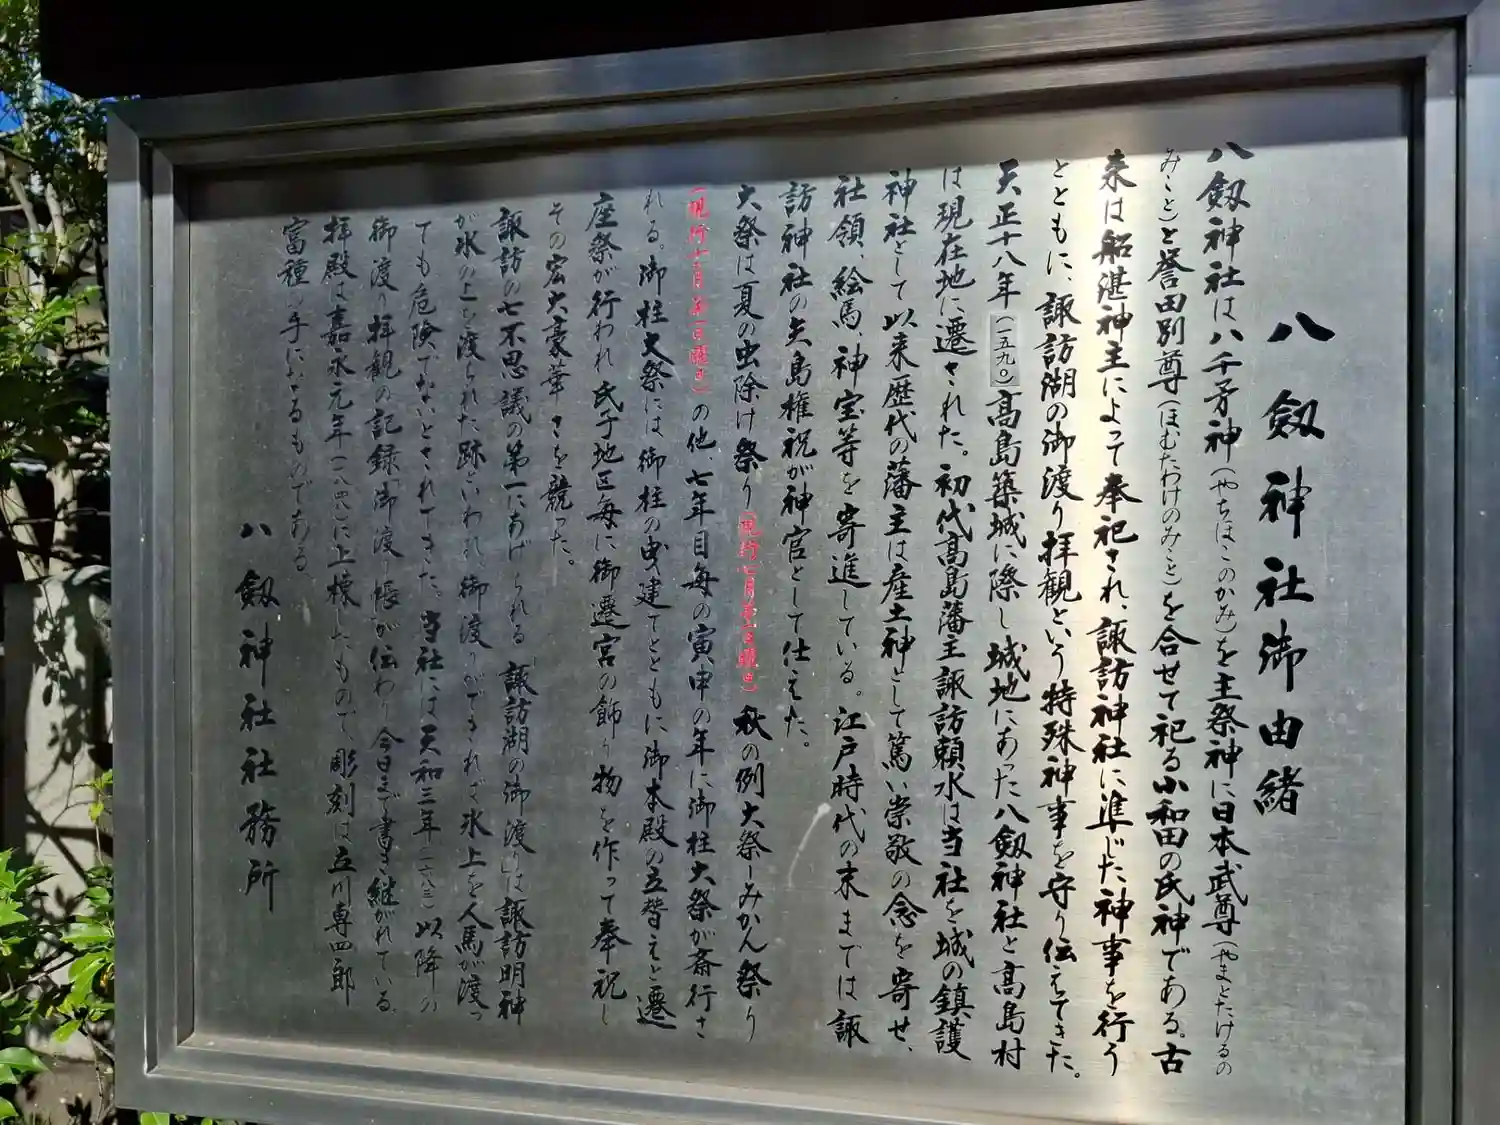 八劔神社御由緒
八劔神社は八千矛神(やちほこのかみ)を主祭神に日本武尊(やまとたけるの
みこと)と誉田別尊(ほむたわけのみこと)を合せて祀る小和田の氏神である。古
来は船湛神主によって奉祀され、諏訪神社に準じた神事を行う
とともに、諏訪湖の御渡り拝観という特殊神事を守り伝えてきた。
天正十八年(一五九〇)高島築城に際し城地にあった八劔神社と高島村
は現在地に遷された。初代高島藩主諏訪頼水は当社を城の鎮護
神社として以来歴代の藩主は産土神として篤い崇敬の念を寄せ、
社領、絵馬、神宝等を寄進している。江戸時代の末までは諏
訪神社の矢島権祝が神官として仕えた。
大祭は夏の虫除け祭り(現行七月 日曜日)秋の例大祭–みかん祭り
(現行十 月第一日曜日)の他、七年目毎の寅申の年に御柱大祭が斎行さ
れる。御柱大祭には御柱の曳き建てとともに御本殿の立替えと遷
座祭が行われ氏子地区毎に御遷宮の飾り物を作って奉祝し
その宏大豪華さを競った。
諏訪の七不思議の第一にあげられる「諏訪湖の御渡り」は諏訪明神
が氷の上を渡られた跡といわれ、御渡りができれば氷上を人馬が渡っ
ても危険でないとされてきた。当社には天和三年(一六八三)以降の
御渡り拝観の記録「御渡り帳」が伝わり今日まで書き継がれている。
拝殿は嘉永元年(一八四八)に上棟したもので、彫刻は立川専四郎
富種の手になるものである
八劔神社社務所